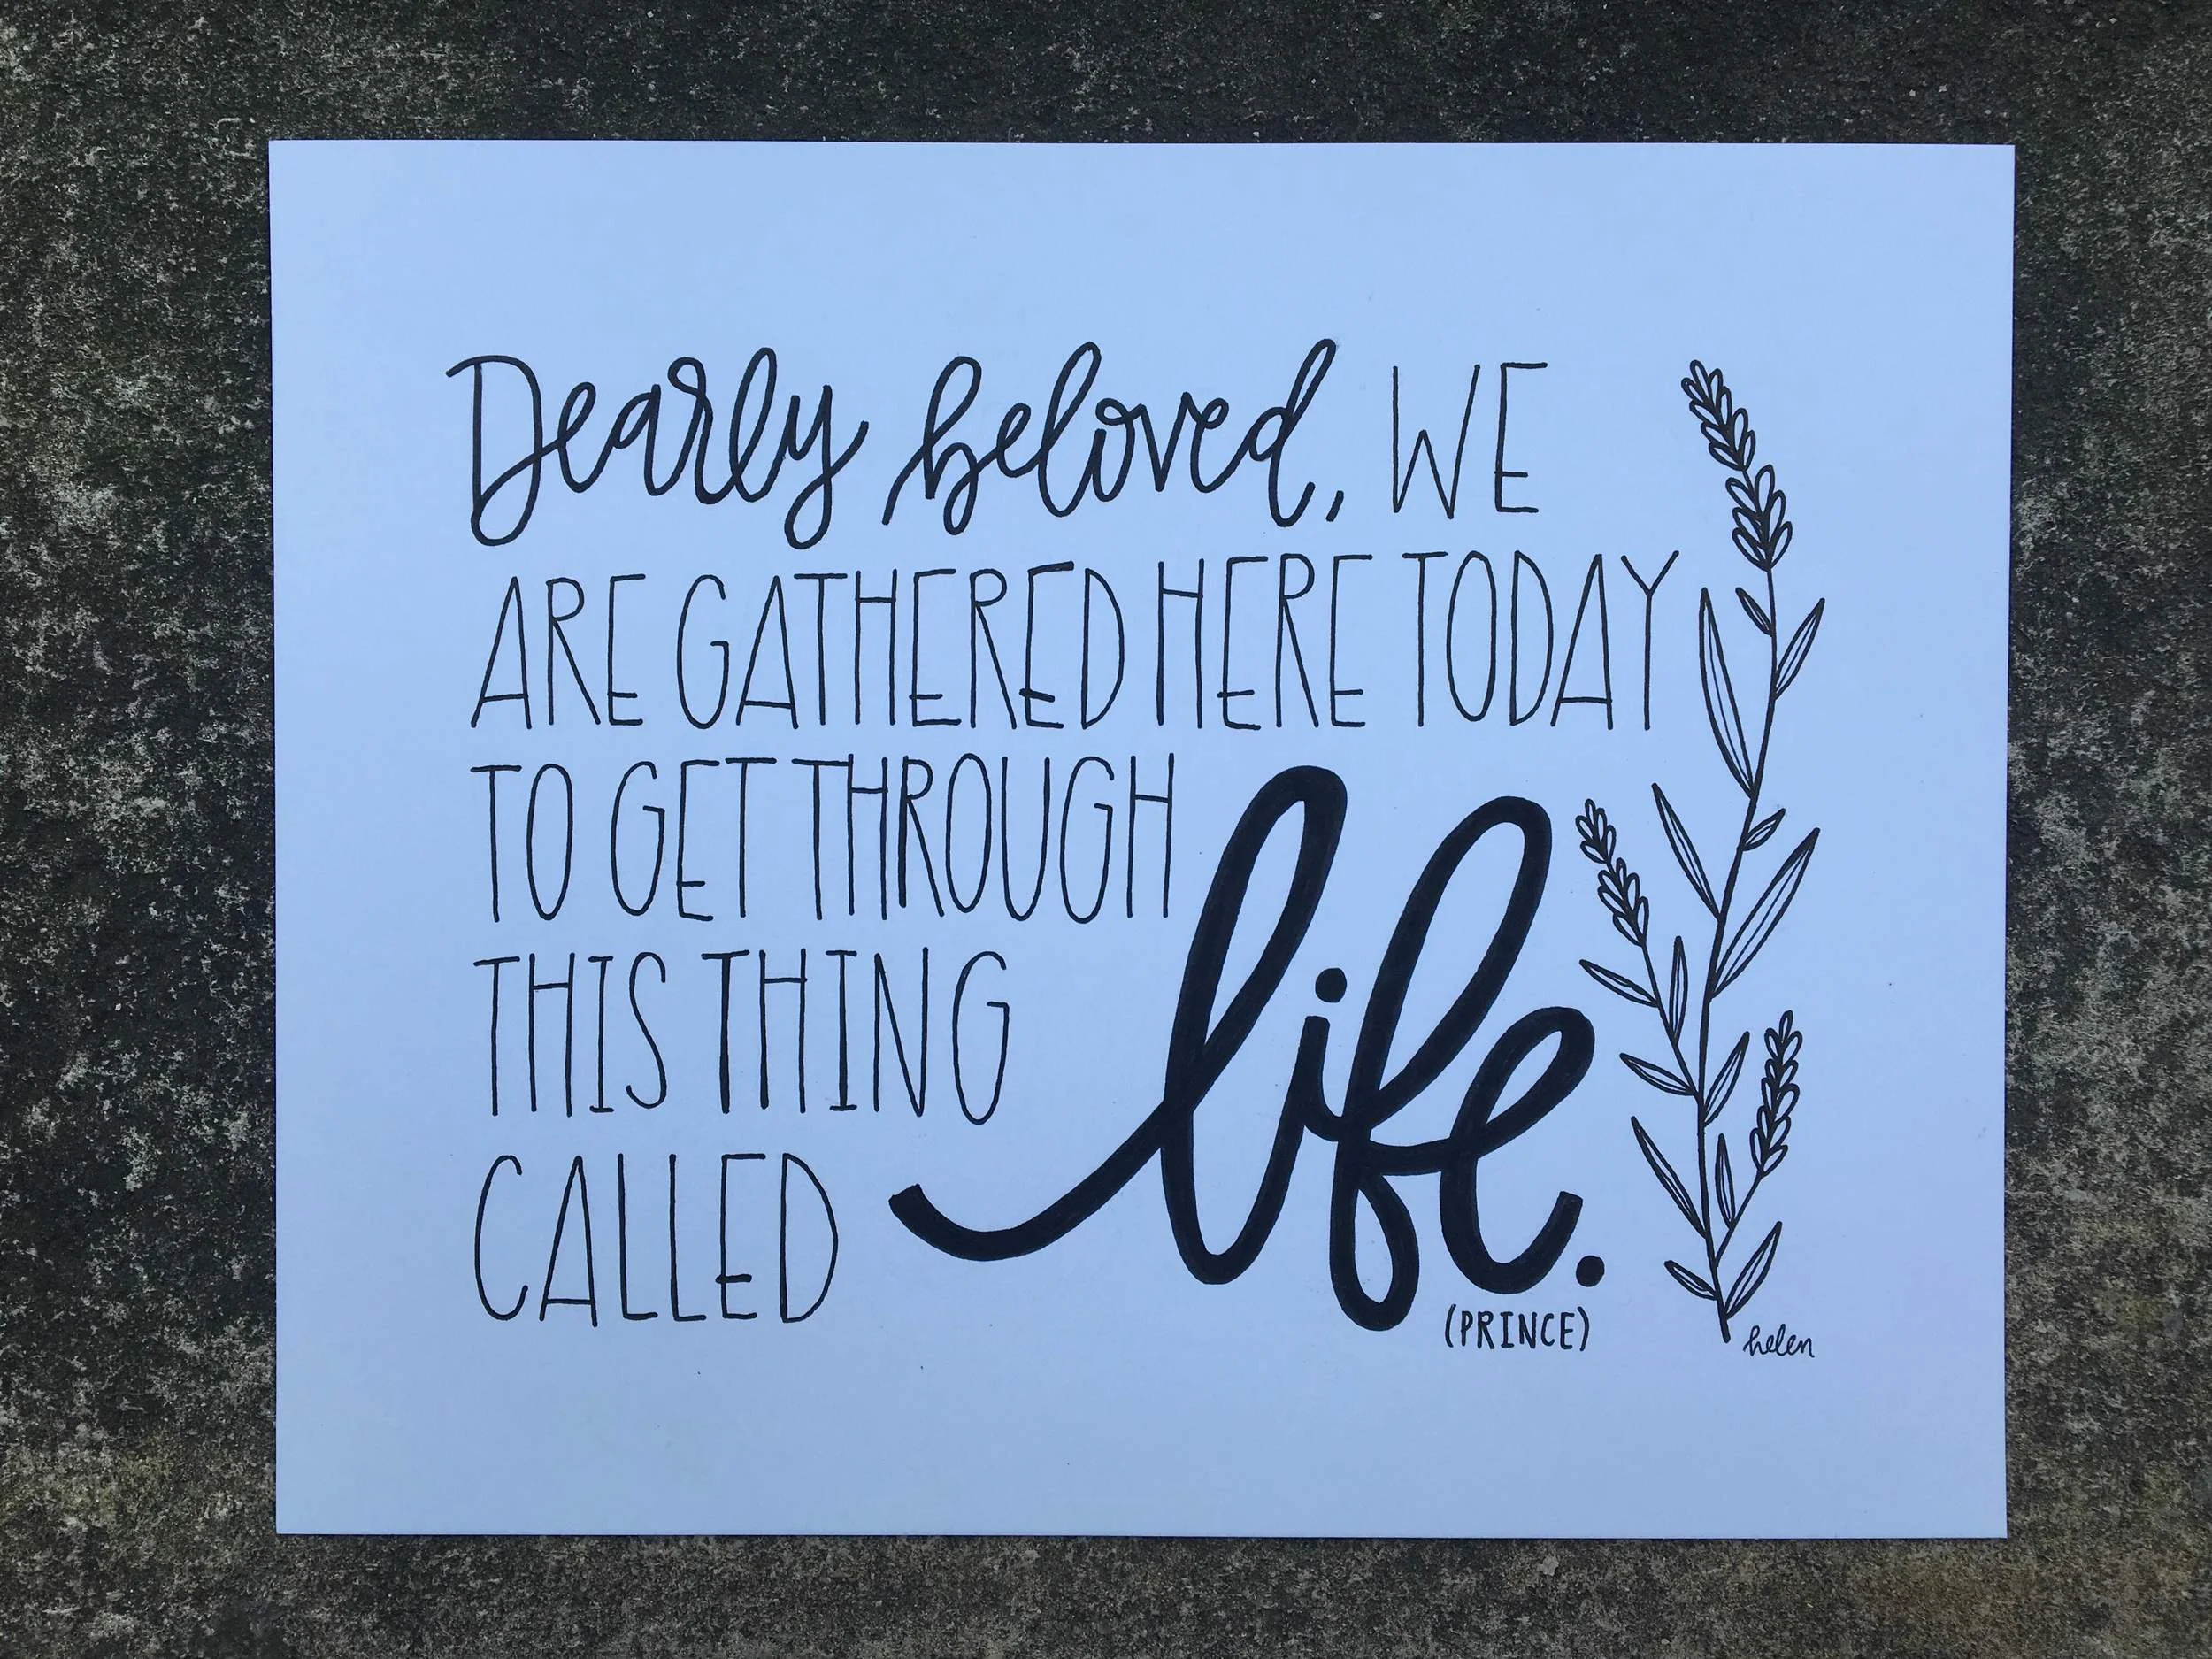 Dearly beloved, WE
ARE GATHERED HERE TODAY
TO GET THROUGH
THIS THING
CALLED life.
(PRINCE)
helen